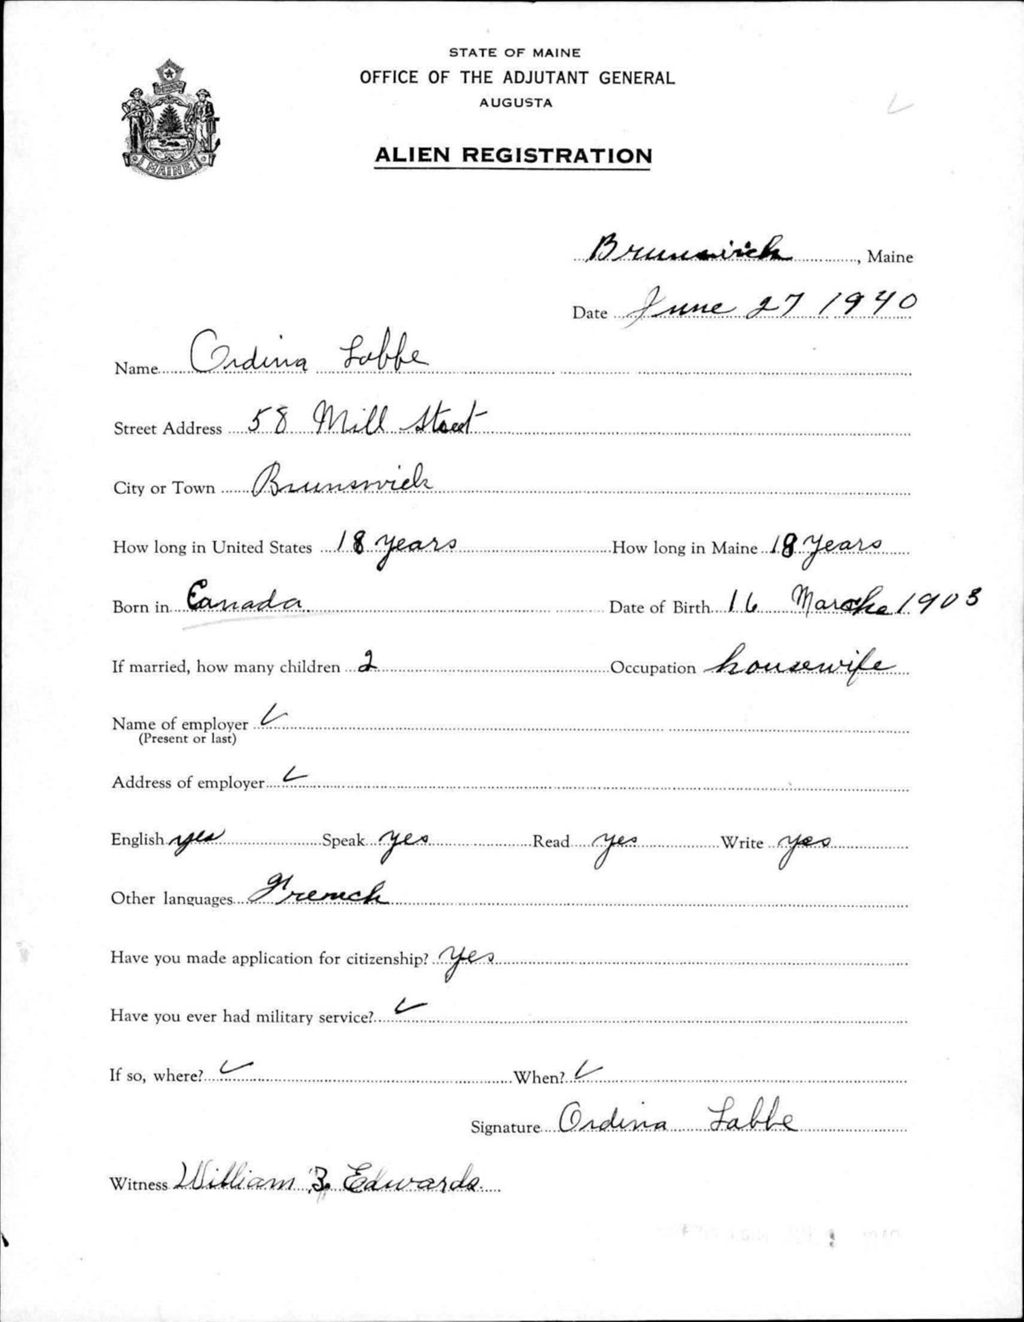 STATE OF MAINE
OFFICE OF THE ADJUTANT GENERAL
AUGUSTA
ALIEN REGISTRATION
MAINE
Brunswick, Maine
Date June 27 1940
Name Ordina Labbe
Street Address 58 Mill Street
City or Town Brunswick
How long in United States 18 years How long in Maine 18 years
Born in Canada. Date of Birth 16 Marche 1903
If married, how many children 2 Occupation housewife
Name of employer ✓
(Present or last)
Address of employer ✓
English yes Speak yes Read yes Write yes
Other languages French
Have you made application for citizenship? yes
Have you ever had military service? ✓
If so, where? ✓ When? ✓
Signature Ordina Labbe
Witness William B. Edwards.